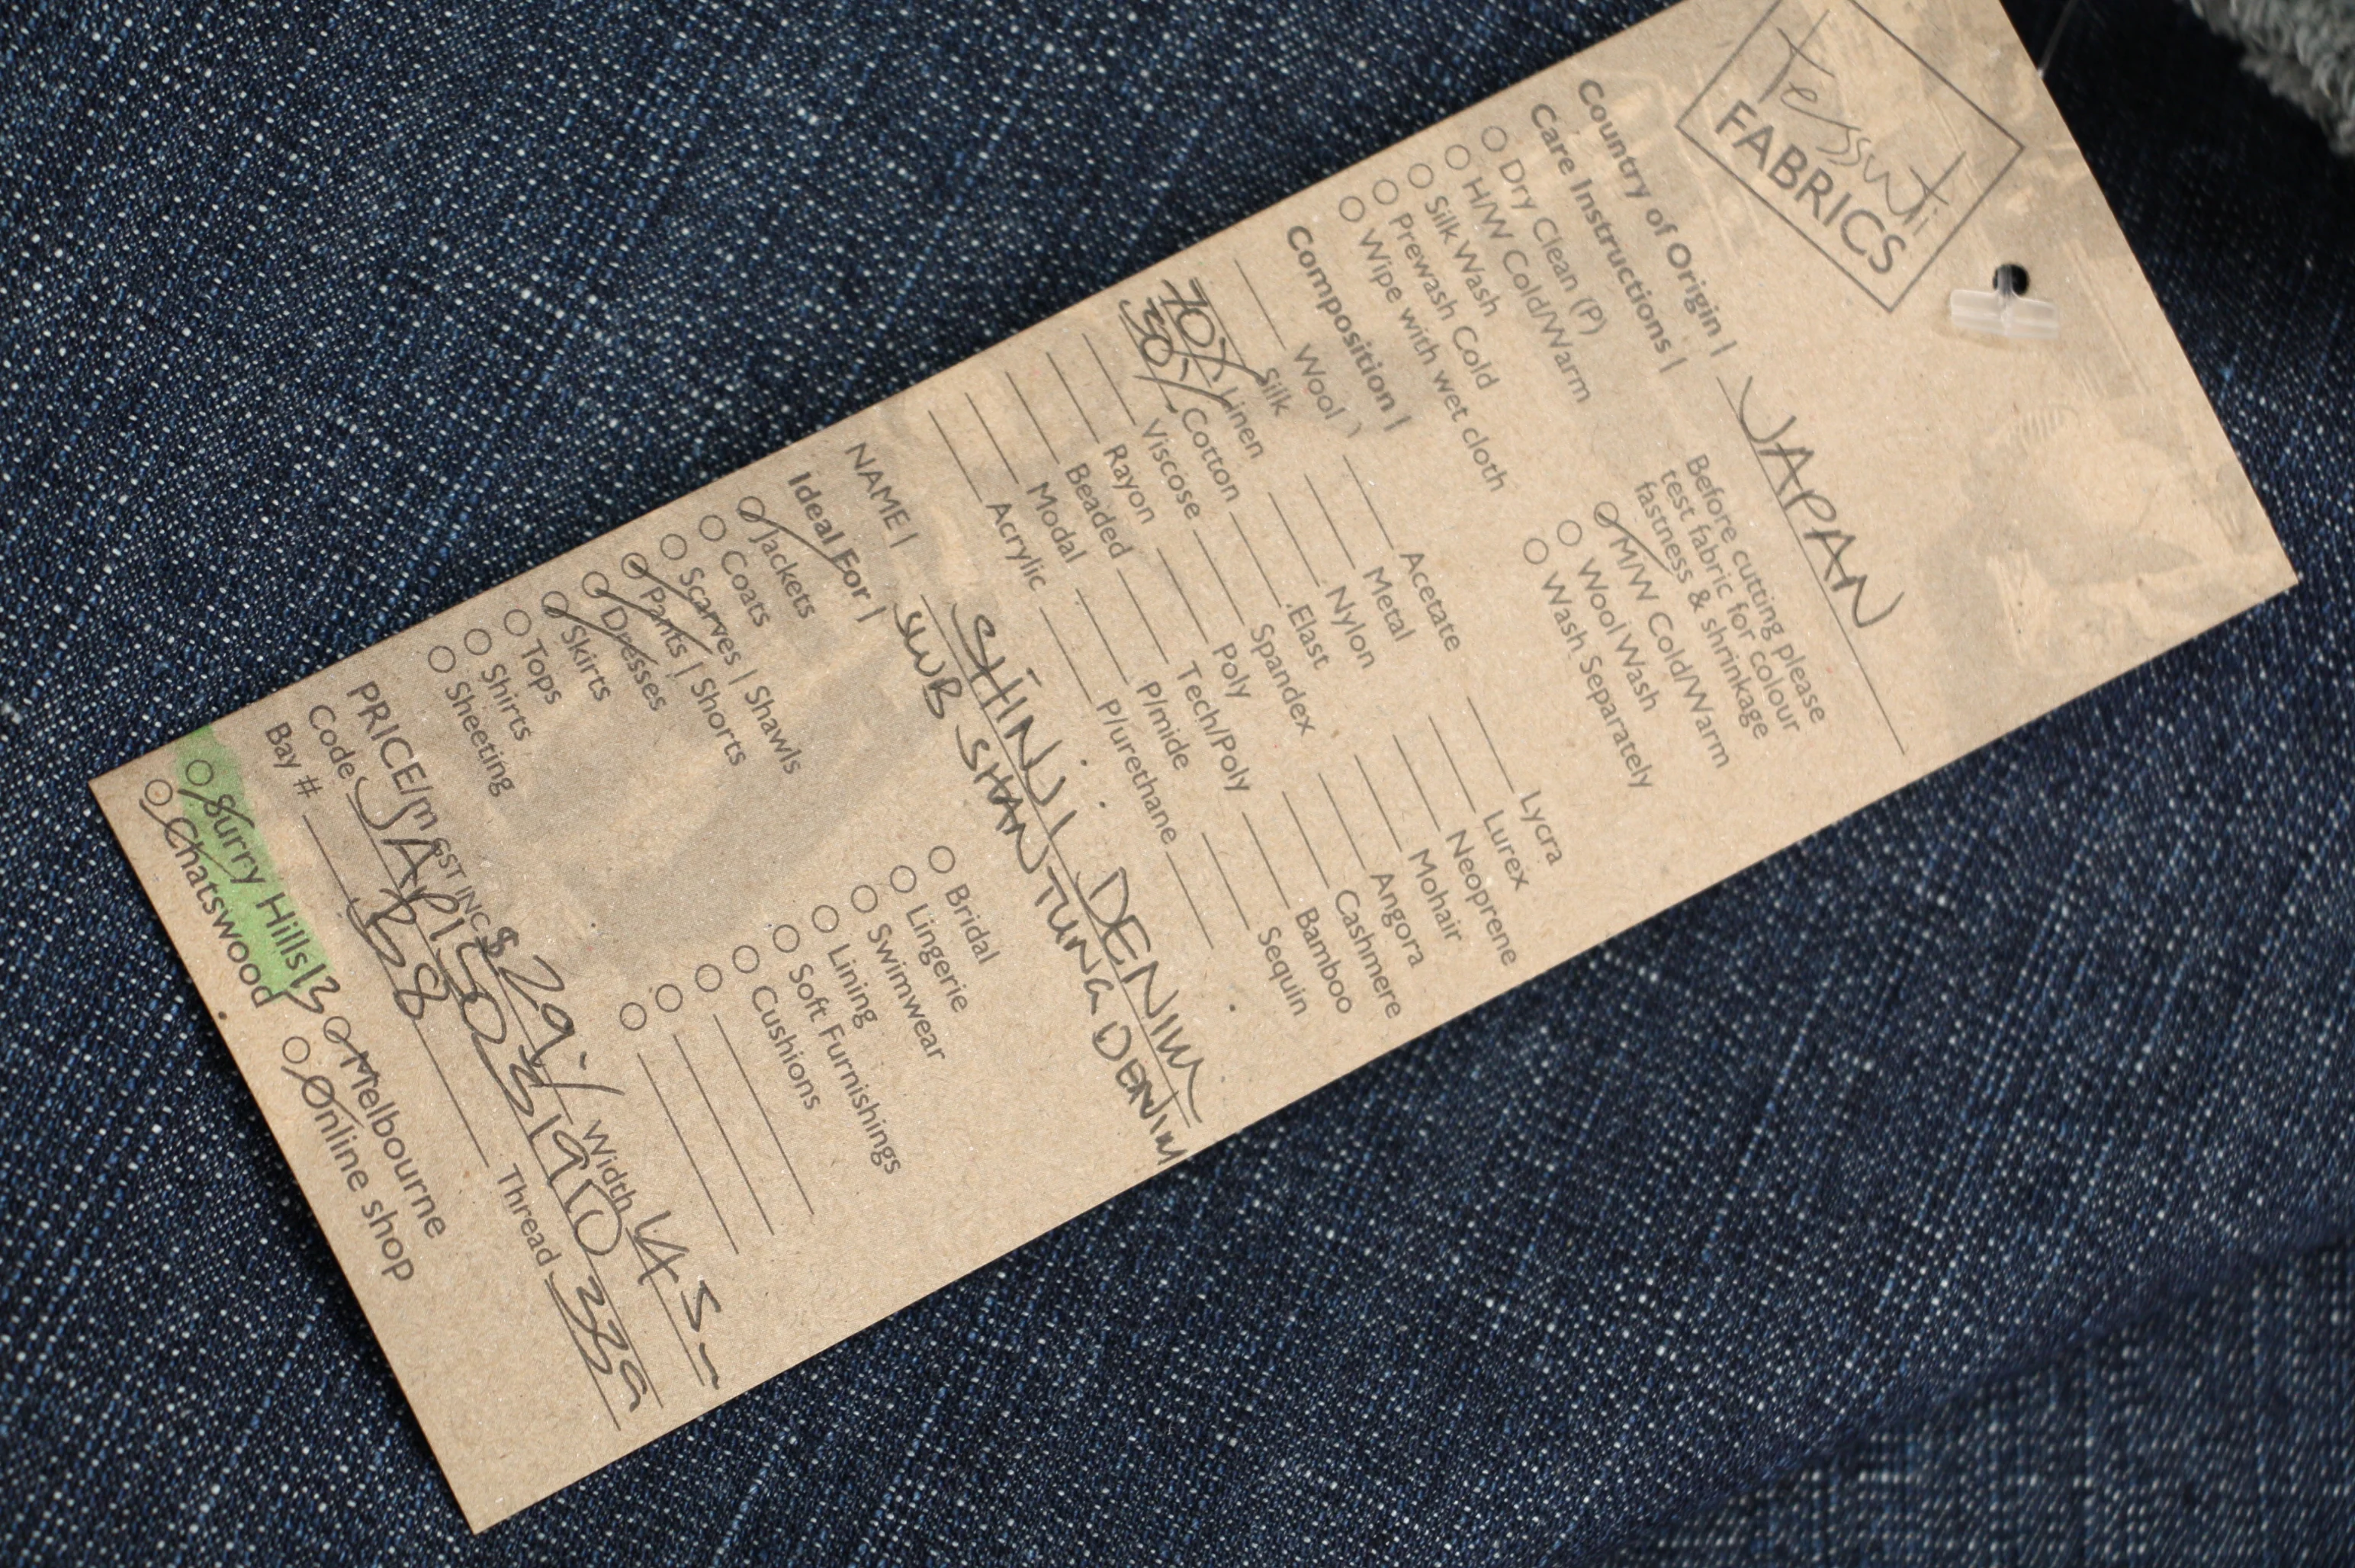 tessuti
FABRICS
Country of Origin | JAPAN
Care Instructions |
Before cutting please
test fabric for colour
fastness & shrinkage
Dry Clean (P)
H/W Cold/Warm
Silk Wash
Prewash Cold
Wipe with wet cloth
M/W Cold/Warm
Wool Wash
Wash Separately
Composition |
Wool Acetate Lycra
Silk Metal Lurex
70% Linen Nylon Neoprene
30% Cotton Elast Mohair
Viscose Spandex Angora
Rayon Poly Cashmere
Beaded Tech/Poly Bamboo
Modal P/mide Sequin
Acrylic P/urethane
NAME | SHINJI DENIM
SWB SHANTUNG DENIM
Ideal For |
Jackets Bridal
Coats Lingerie
Scarves | Shawls Swimwear
Pants | Shorts Lining
Dresses Soft Furnishings
Skirts Cushions
Tops
Shirts
Sheeting
PRICE/m GST INC. $29.- Width 145~
Code
Bay # B8 Thread 339
Surry Hills 13 Melbourne
Chatswood Online shop